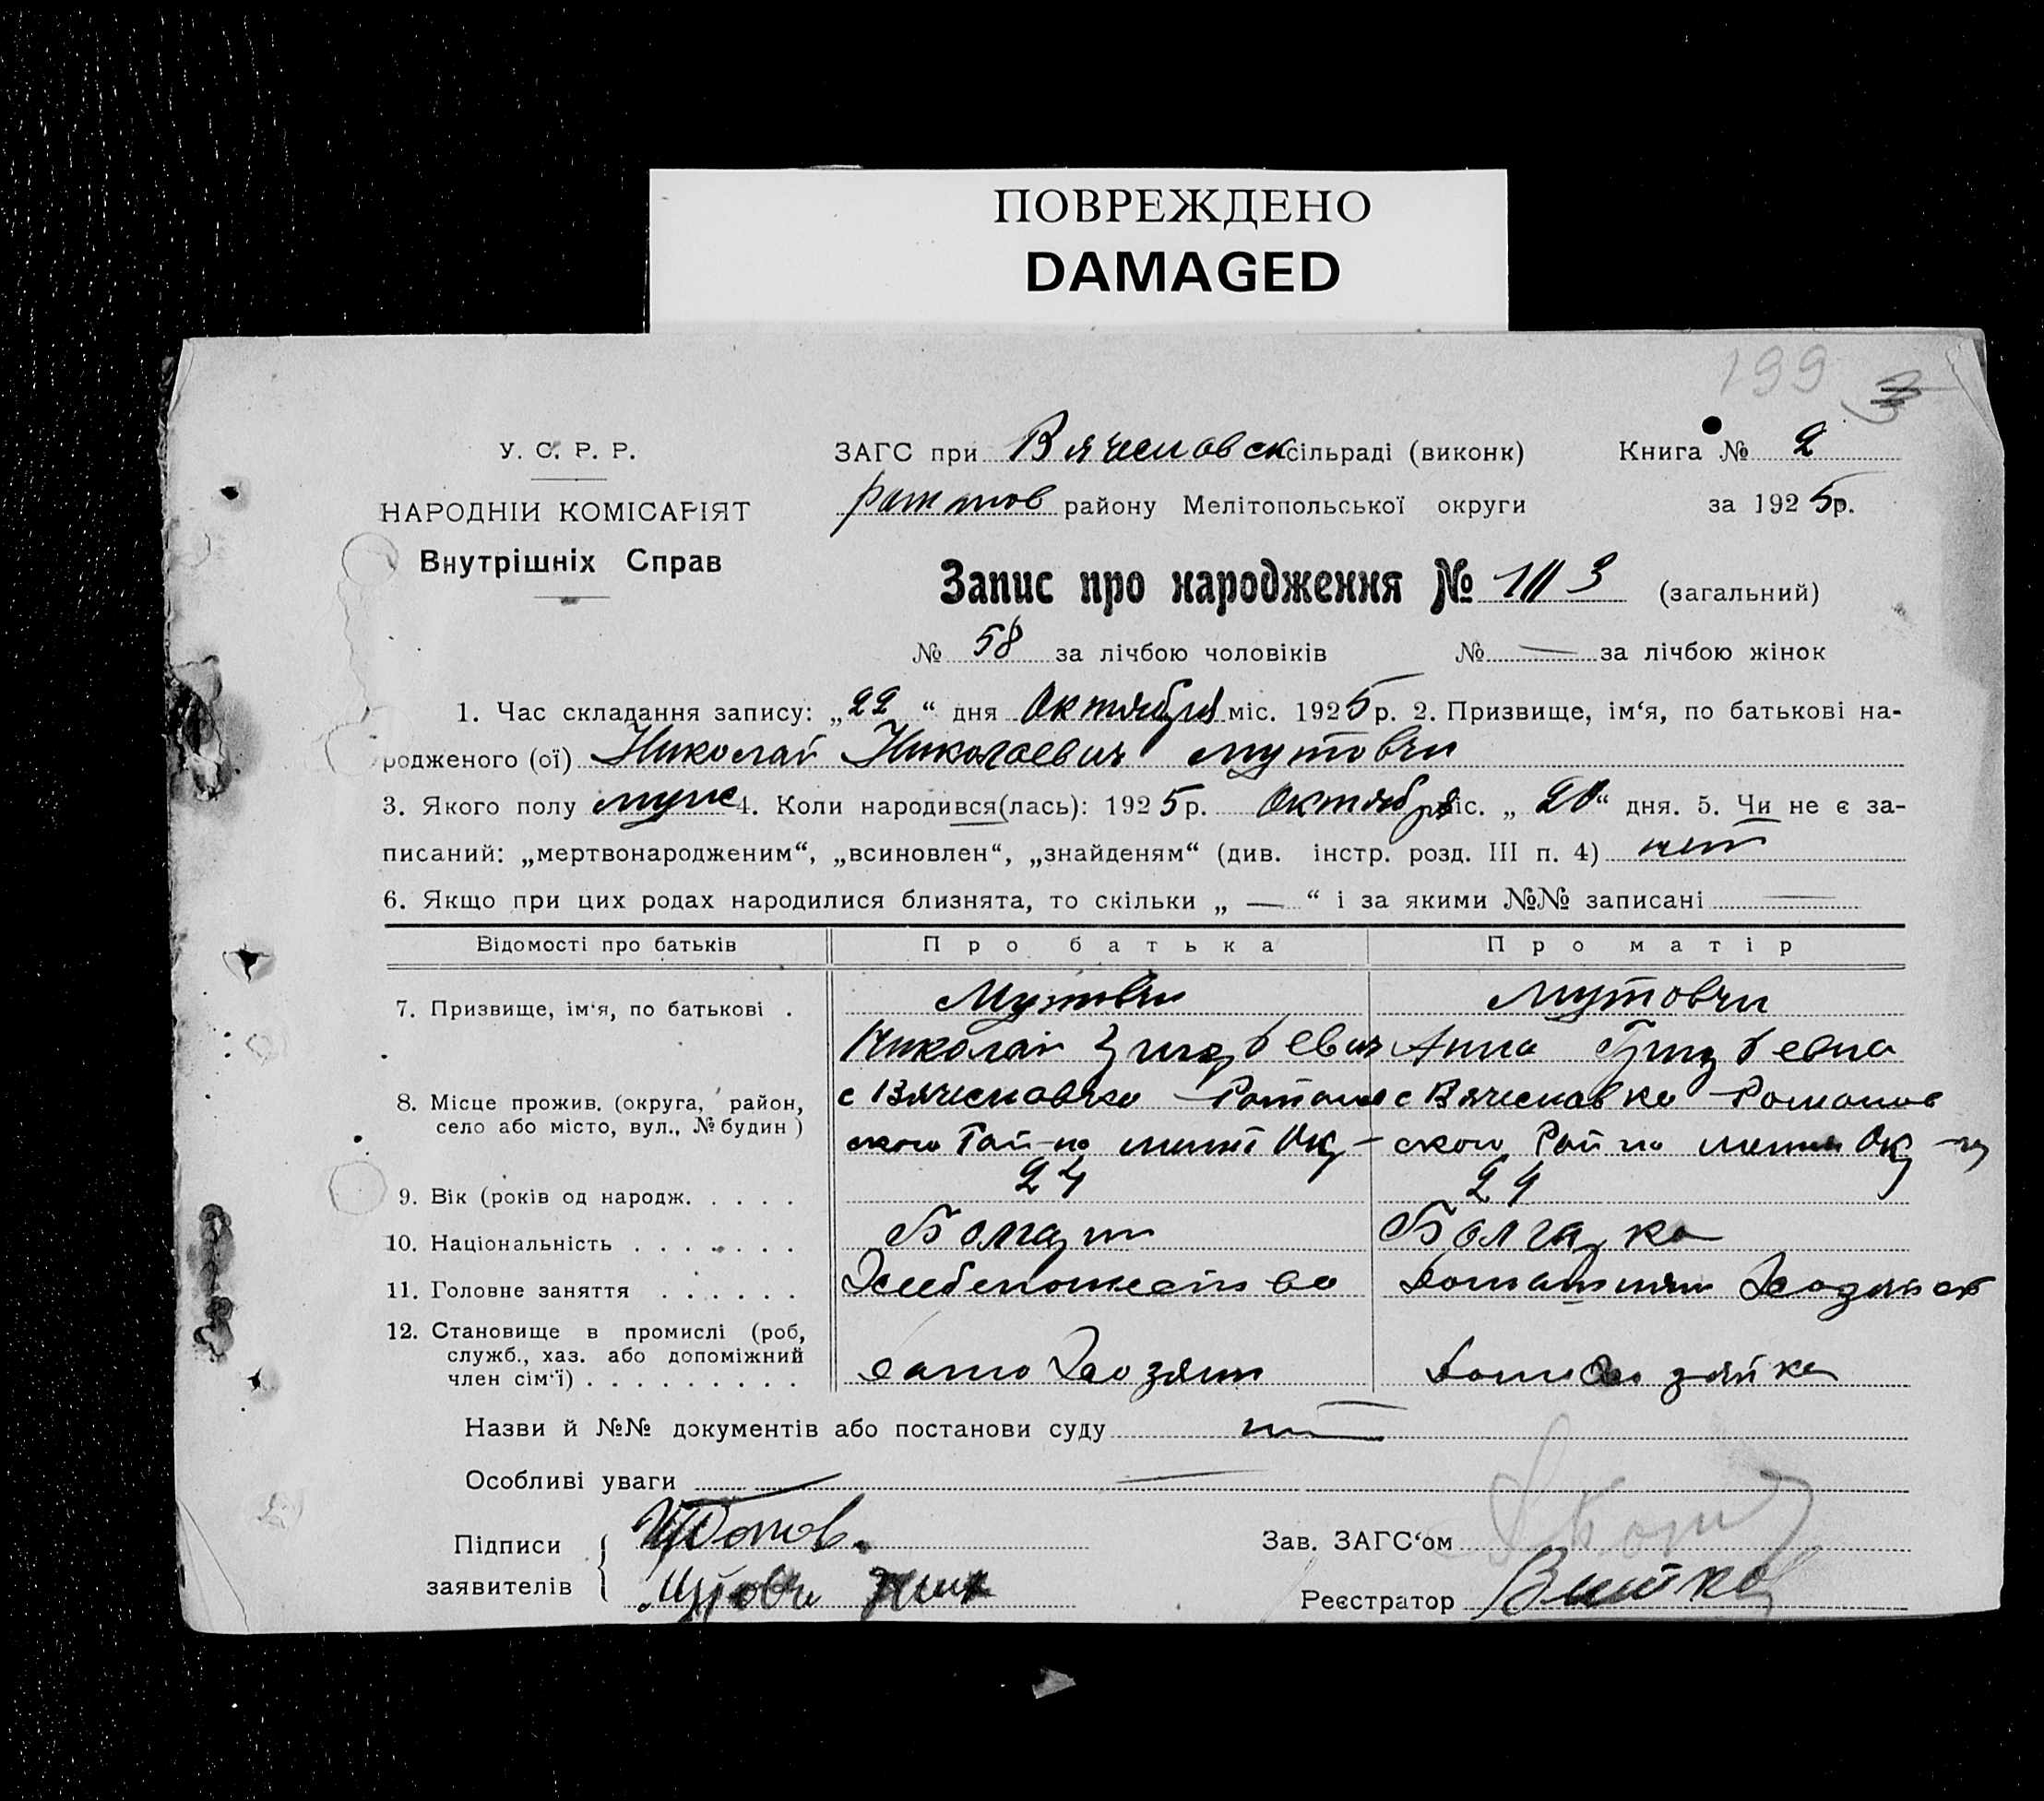 ПОВРЕЖДЕНО
DAMAGED
199 3
У. С. Р. Р.
НАРОДНІЙ КОМІСАРІЯТ
Внутрішніх Справ
ЗАГС при Вячеславск сільраді (виконк) Книга № 2
району Мелітопольської округи за 1925 р.
Запис про народження № 113 (загальний)
№ 58 за лічбою чоловіків № — за лічбою жінок
1. Час складання запису: „22“ дня Октября міс. 1925 р. 2. Призвище, ім‘я, по батькові на-
родженого (ої) Николай Николаевич Мутовчи
3. Якого полу муж 4. Коли народився(лась): 1925 р. Октября міс. „20“ дня. 5. Чи не є за-
писаний: „мертвонародженим“, „всиновлен“, „знайденям“ (див. інстр. розд. III п. 4) нет
6. Якщо при цих родах народилися близнята, то скільки „ — “ і за якими №№ записані —
Відомості про батьків Про батька Про матір
7. Призвище, ім‘я, по батькові . Мутовчи Мутовчи
Николай Анна
8. Місце прожив. (округа, район, с Вячеславка с Вячеславка
село або місто, вул., № будин ) Рай Ок Рай Ок
9. Вік (років од народж. . . . . 24 24
10. Національність . . . . . . . Болгарин Болгарка
11. Головне заняття . . . . . . Хлебопашество Домашняя Хозяйств
12. Становище в промислі (роб,
служб., хаз. або допоміжний
член сім‘ї) . . . . . . . . . . само Хозяин домохозяйка
Назви й №№ документів або постанови суду нет
Особливі уваги — —
Підписи
заявителів Мутовчи Ник
Зав. ЗАГС‘ом
Реєстратор